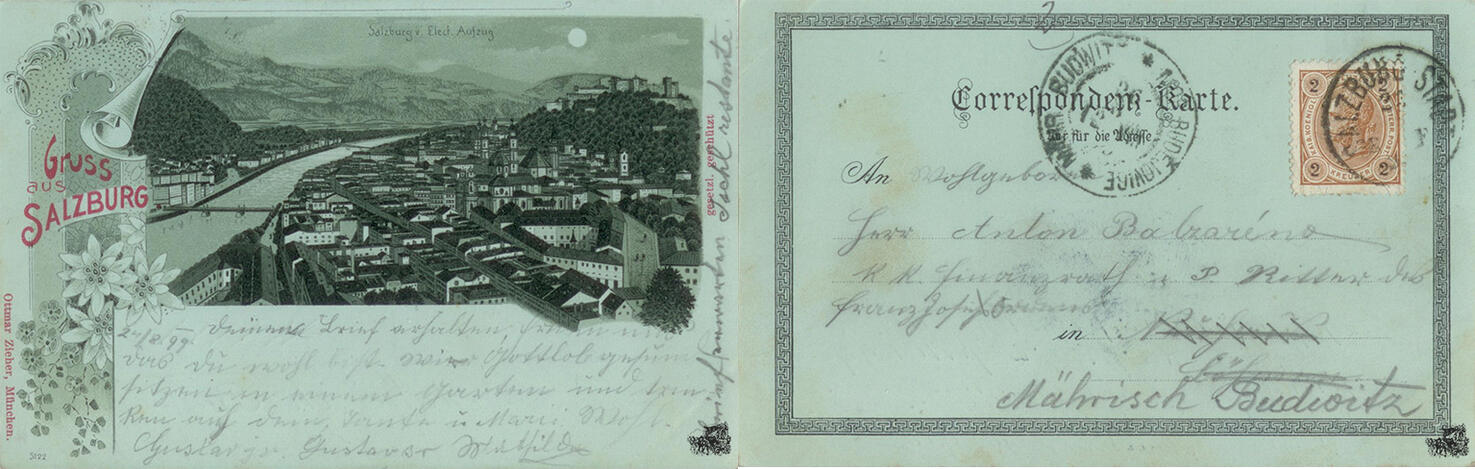 Salzburg v. Elect. Aufzug
Gruss
aus
SALZBURG
gesetzl. geschützt
Ottmar Zieher, München.
5122
24/8 99. Deinen Brief erhalten, freuen uns
das du wohl bist. Wir Gottlob gesund
sitzen in einem Garten und trin
ken auf dem Tante u Mari Wohl.
Gustav Mathilde
Brief erwarten Ischl restante.
2
Correspondenz-Karte.
Nur für die Adresse
An Wohlgebor
Herr Anton Balzaréno
K K Finanzrath u P. Ritter des
Franz Josef Ordens
in
Mährisch Budwitz
MÄHR. BUDWITZ
MOR. BUDĚJOVICE
SALZBURG STADT
2 2
2 2
KREUZER